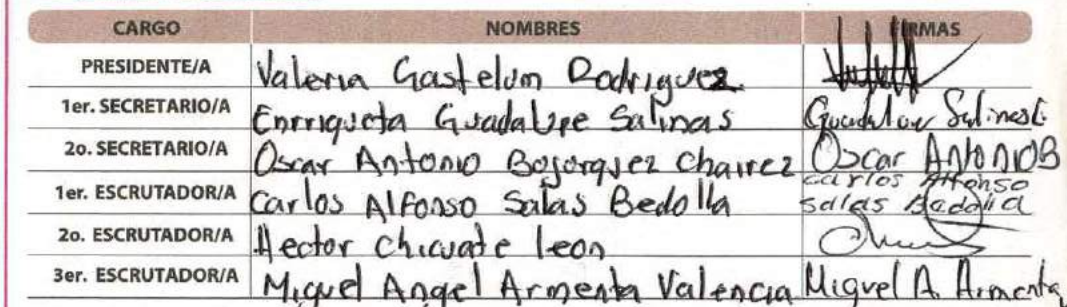 CARGO NOMBRES FIRMAS
PRESIDENTE/A Valeria Gastelum Rodriguez
1er. SECRETARIO/A Enrriqueta Guadalupe Salinas Guadalupe Salinas E.
2o. SECRETARIO/A Oscar Antonio Bojorquez Chairez Oscar Antonio B
1er. ESCRUTADOR/A Carlos Alfonso Salas Bedolla Carlos Alfonso
Salas Bedolla
2o. ESCRUTADOR/A Hector Chicuate leon
3er. ESCRUTADOR/A Miguel Angel Armenta Valencia Miguel A. Armenta